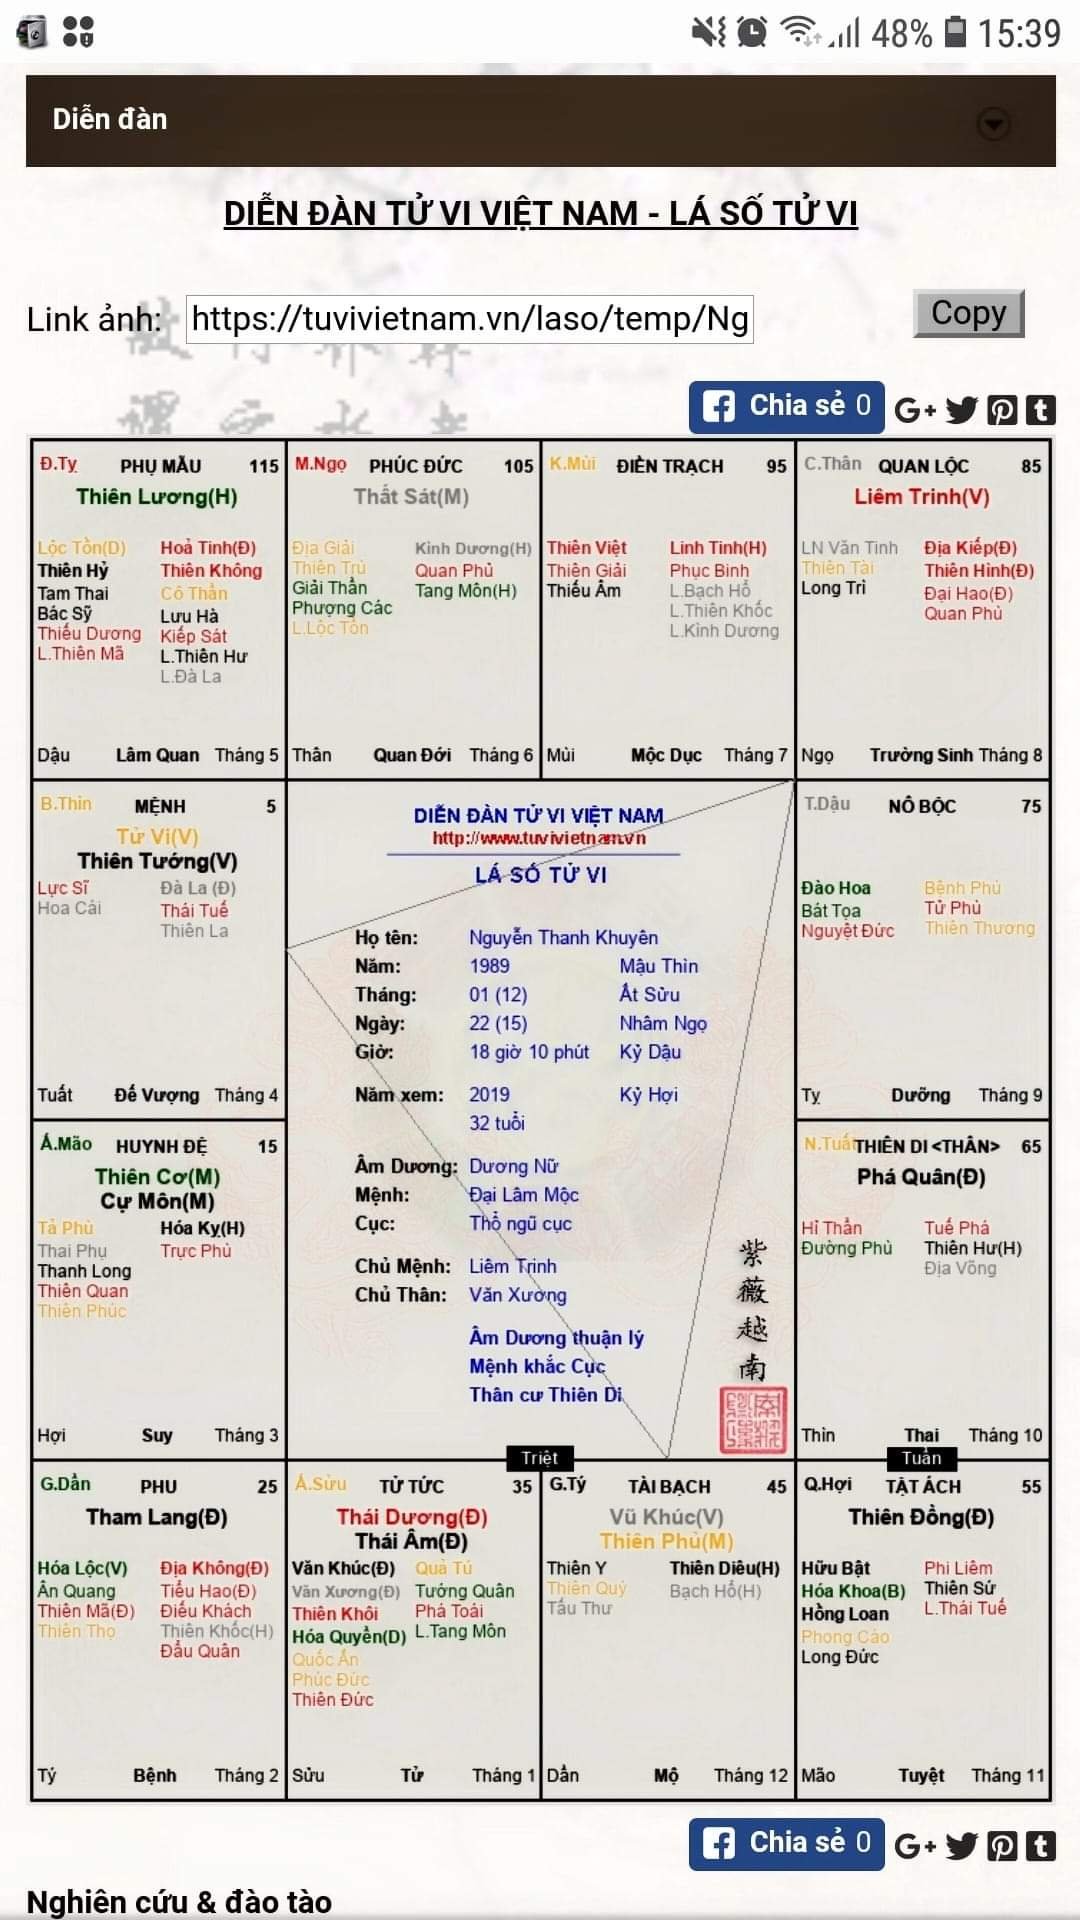 48% 15:39
Diễn đàn
DIỄN ĐÀN TỬ VI VIỆT NAM - LÁ SỐ TỬ VI
Link ảnh: https://tuvivietnam.vn/laso/temp/Ng Copy
Chia sẻ 0
Đ.Tỵ PHỤ MẪU 115
Thiên Lương(H)
Lộc Tồn(D) Hoả Tinh(Đ)
Thiên Hỷ Thiên Không
Tam Thai Cô Thần
Bác Sỹ Lưu Hà
Thiếu Dương Kiếp Sát
L.Thiên Mã L.Thiên Hư
L.Đà La
Dậu Lâm Quan Tháng 5
M.Ngọ PHÚC ĐỨC 105
Thất Sát(M)
Địa Giải Kình Dương(H)
Thiên Trù Quan Phủ
Giải Thần Tang Môn(H)
Phượng Các
L.Lộc Tồn
Thân Quan Đới Tháng 6
K.Mùi ĐIỀN TRẠCH 95
Thiên Việt Linh Tinh(H)
Thiên Giải Phục Binh
Thiếu Âm L.Bạch Hổ
L.Thiên Khốc
L.Kình Dương
Mùi Mộc Dục Tháng 7
C.Thân QUAN LỘC 85
Liêm Trinh(V)
LN Văn Tinh Địa Kiếp(Đ)
Thiên Tài Thiên Hình(Đ)
Long Trì Đại Hao(Đ)
Quan Phù
Ngọ Trường Sinh Tháng 8
B.Thìn MỆNH 5
Tử Vi(V)
Thiên Tướng(V)
Lực Sĩ Đà La (Đ)
Hoa Cái Thái Tuế
Thiên La
Tuất Đế Vượng Tháng 4
DIỄN ĐÀN TỬ VI VIỆT NAM
http://www.tuvivietnam.vn
LÁ SỐ TỬ VI
Họ tên: Nguyễn Thanh Khuyên
Năm: 1989 Mậu Thìn
Tháng: 01 (12) Ất Sửu
Ngày: 22 (15) Nhâm Ngọ
Giờ: 18 giờ 10 phút Kỷ Dậu
Năm xem: 2019 Kỷ Hợi
32 tuổi
Âm Dương: Dương Nữ
Mệnh: Đại Lâm Mộc
Cục: Thổ ngũ cục
Chủ Mệnh: Liêm Trinh
Chủ Thân: Văn Xương
Âm Dương thuận lý
Mệnh khắc Cục
Thân cư Thiên Di
紫
薇
越
南
T.Dậu NÔ BỘC 75
Đào Hoa Bệnh Phù
Bát Tọa Tử Phù
Nguyệt Đức Thiên Thương
Tỵ Dưỡng Tháng 9
Ấ.Mão HUYNH ĐỆ 15
Thiên Cơ(M)
Cự Môn(M)
Tả Phù Hóa Kỵ(H)
Thai Phụ Trực Phù
Thanh Long
Thiên Quan
Thiên Phúc
Hợi Suy Tháng 3
N.Tuất THIÊN DI <THÂN> 65
Phá Quân(Đ)
Hỉ Thần Tuế Phá
Đường Phù Thiên Hư(H)
Địa Võng
Thìn Thai Tháng 10
Triệt
Tuần
G.Dần PHU 25
Tham Lang(Đ)
Hóa Lộc(V) Địa Không(Đ)
Ân Quang Tiểu Hao(Đ)
Thiên Mã(Đ) Điếu Khách
Thiên Thọ Thiên Khốc(H)
Đẩu Quân
Tý Bệnh Tháng 2
Ấ.Sửu TỬ TỨC 35
Thái Dương(Đ)
Thái Âm(Đ)
Văn Khúc(Đ) Quả Tú
Văn Xương(Đ) Tướng Quân
Thiên Khôi Phá Toái
Hóa Quyền(D) L.Tang Môn
Quốc Ấn
Phúc Đức
Thiên Đức
Sửu Tử Tháng 1
G.Tý TÀI BẠCH 45
Vũ Khúc(V)
Thiên Phủ(M)
Thiên Y Thiên Diêu(H)
Thiên Quý Bạch Hổ(H)
Tấu Thư
Dần Mộ Tháng 12
Q.Hợi TẬT ÁCH 55
Thiên Đồng(Đ)
Hữu Bật Phi Liêm
Hóa Khoa(B) Thiên Sứ
Hồng Loan L.Thái Tuế
Phong Cáo
Long Đức
Mão Tuyệt Tháng 11
Chia sẻ 0
Nghiên cứu & đào tào